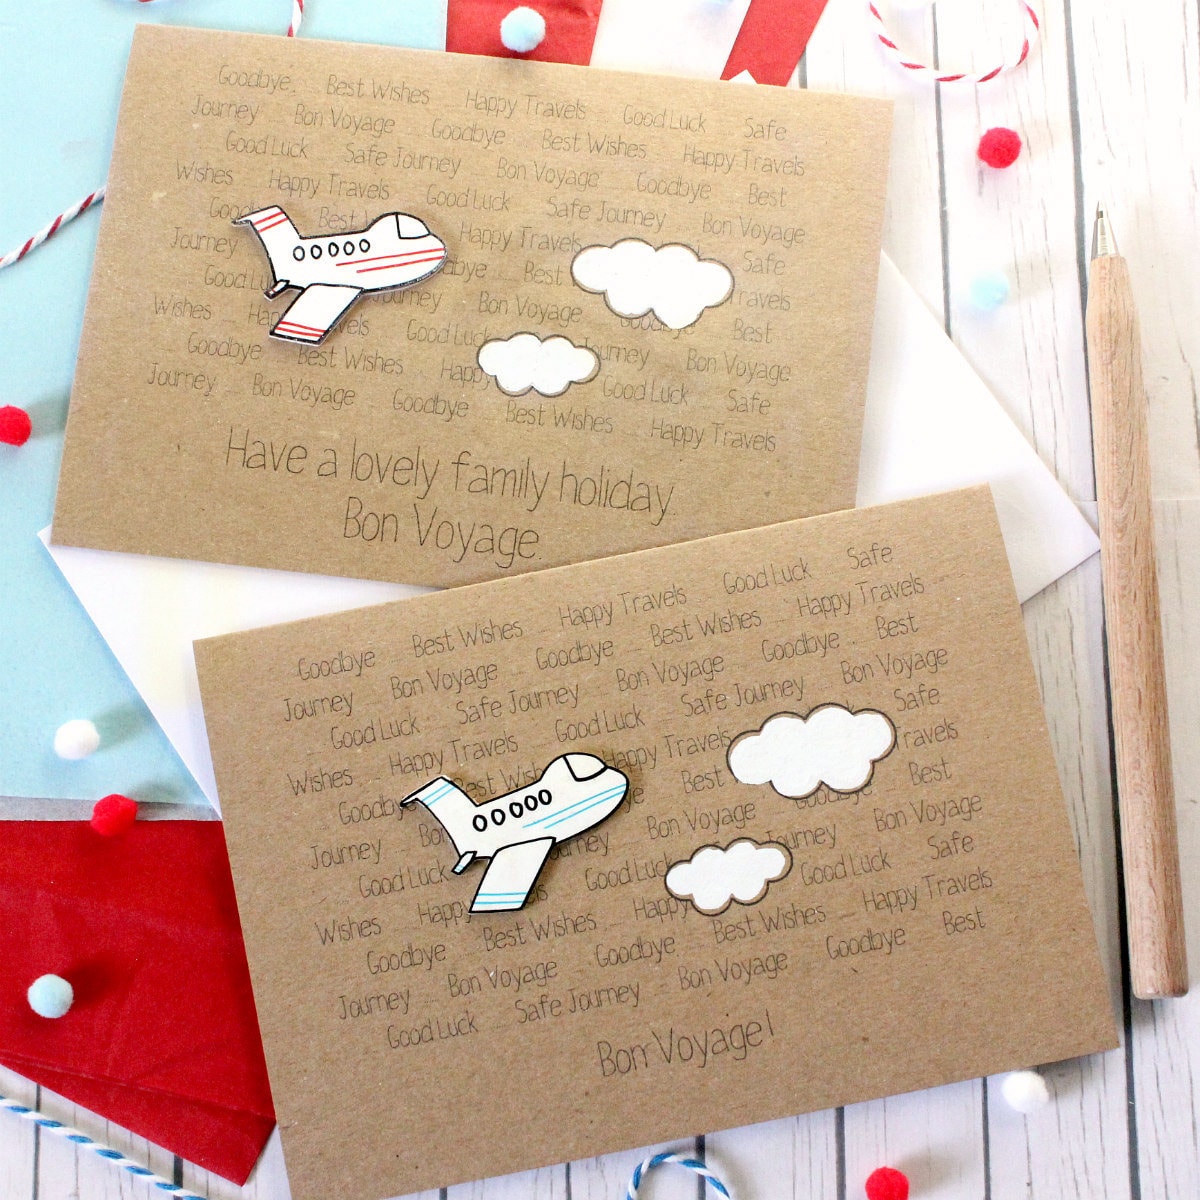 Goodbye ... Best Wishes ... Happy Travels ... Good Luck ... Safe
Journey ... Bon Voyage ... Goodbye ... Best Wishes ... Happy Travels
... Good Luck ... Safe Journey ... Bon Voyage ... Goodbye ... Best
Wishes ... Happy Travels ... Good Luck ... Safe Journey ... Bon Voyage
Best Happy Travels ... Safe
Journey Best Travels
Good Bon Voyage ... Best
Wishes Good Luck Bon Voyage
Goodbye ... Best Wishes ... Good Luck ... Safe
Journey ... Bon Voyage ... Goodbye ... Best Wishes ... Happy Travels
Have a lovely family holiday.
Bon Voyage.
Goodbye ... Best Wishes ... Happy Travels ... Good Luck ... Safe
Journey ... Bon Voyage ... Goodbye ... Best Wishes ... Happy Travels
... Good Luck ... Safe Journey ... Bon Voyage ... Goodbye ... Best
Wishes ... Happy Travels ... Good Luck ... Safe Journey ... Bon Voyage
Best Happy Travels Safe
Journey Best Travels
Good Luck Bon Voyage ... Best
Wishes Good Luck Bon Voyage
Goodbye ... Best Wishes ... Happy Good Luck ... Safe
Journey ... Bon Voyage ... Goodbye ... Best Wishes ... Happy Travels
... Good Luck ... Safe Journey ... Bon Voyage ... Goodbye ... Best
Bon Voyage!